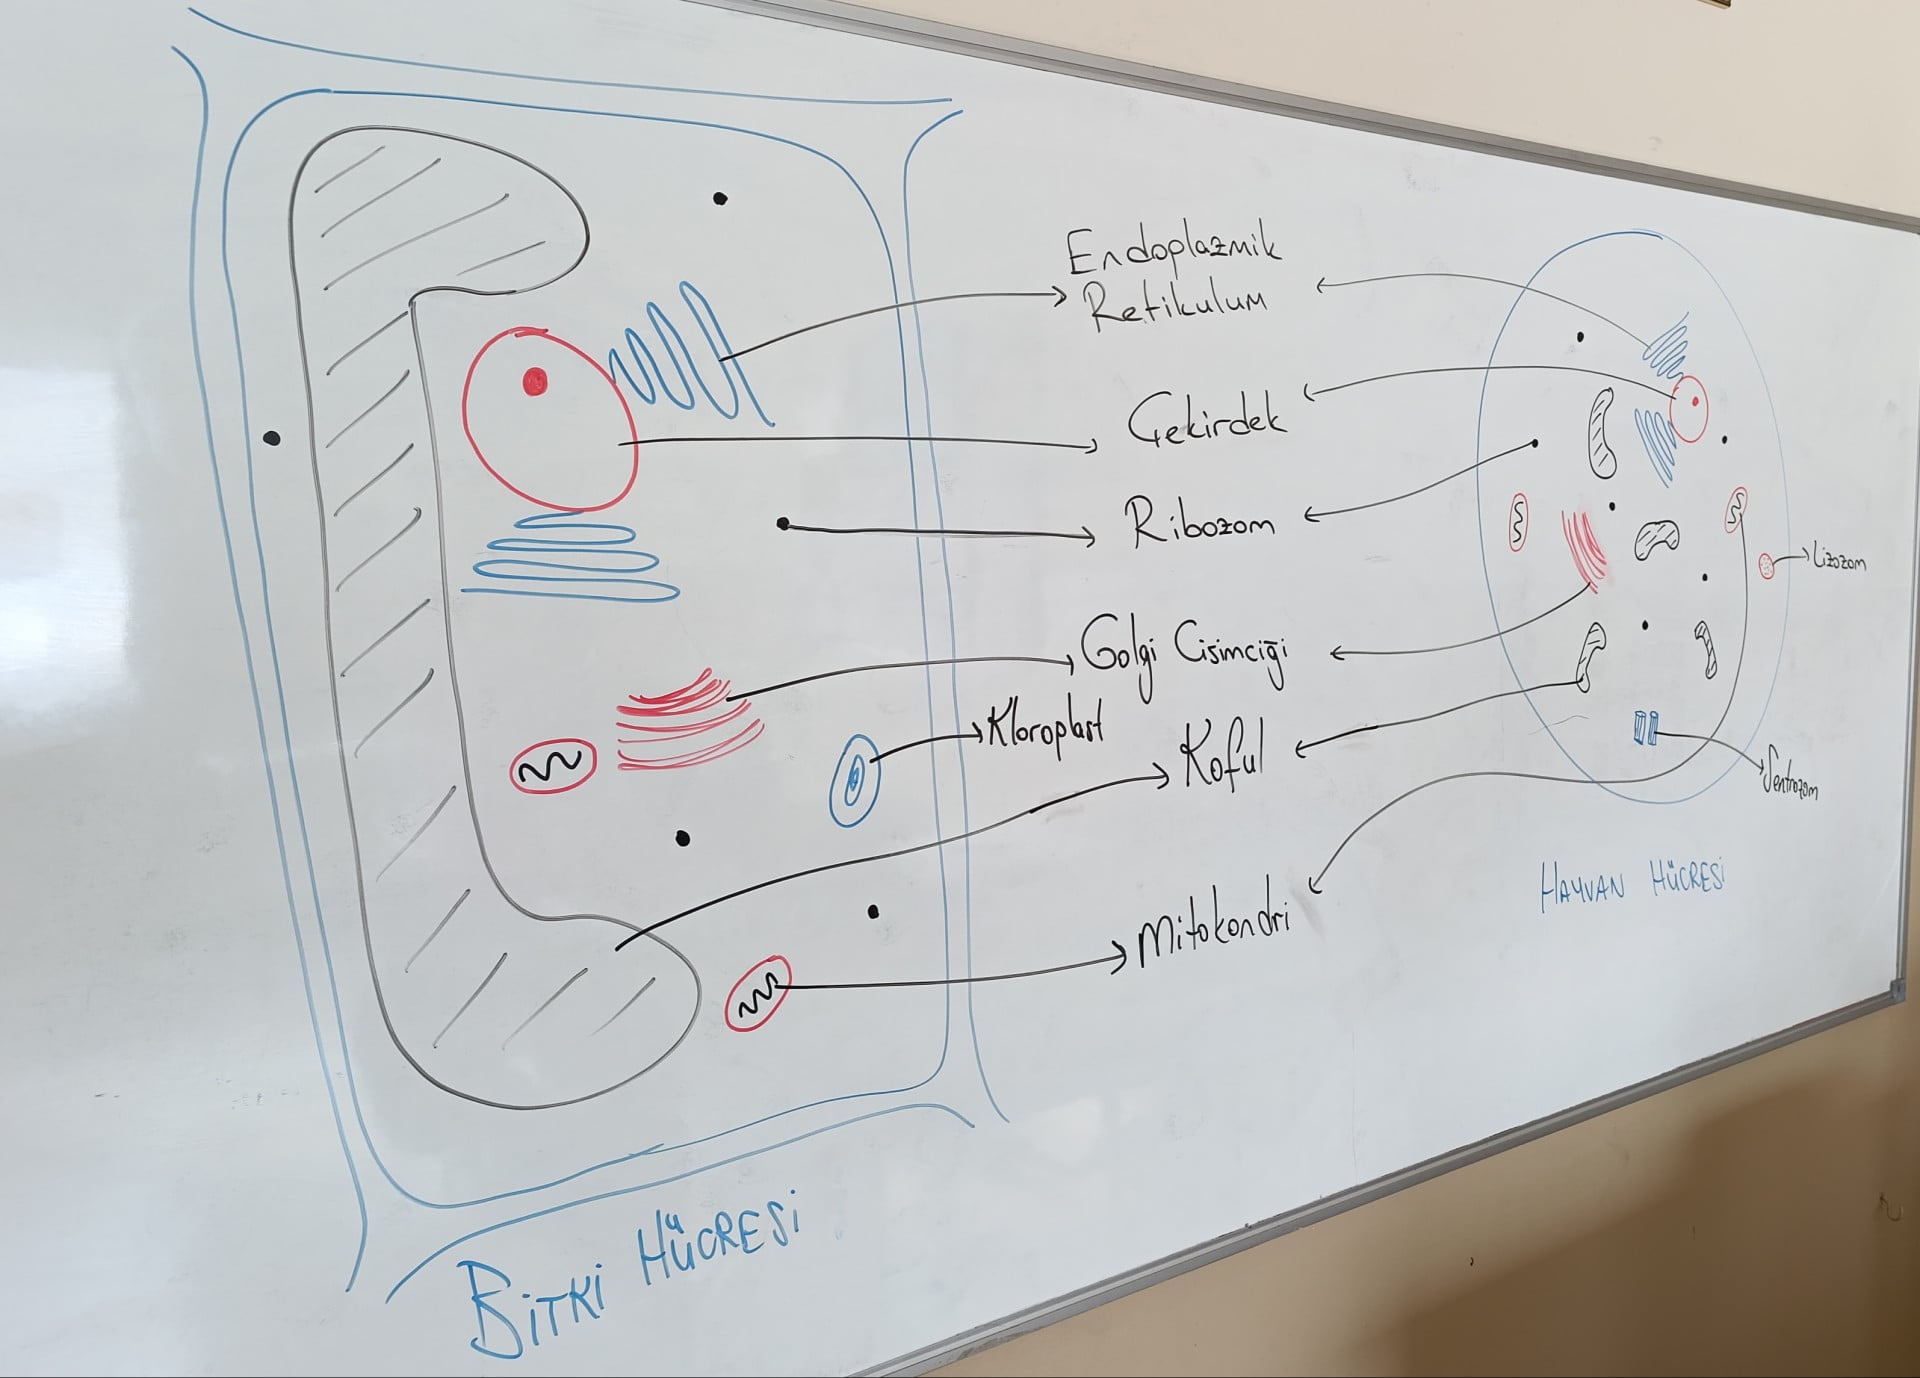 Endoplazmik
Retikulum
Çekirdek
Ribozom
Golgi Cisimciği
Kloroplast
Koful
Mitokondri
Lizozom
Sentrozom
HAYVAN HÜCRESİ
BİTKİ HÜCRESİ